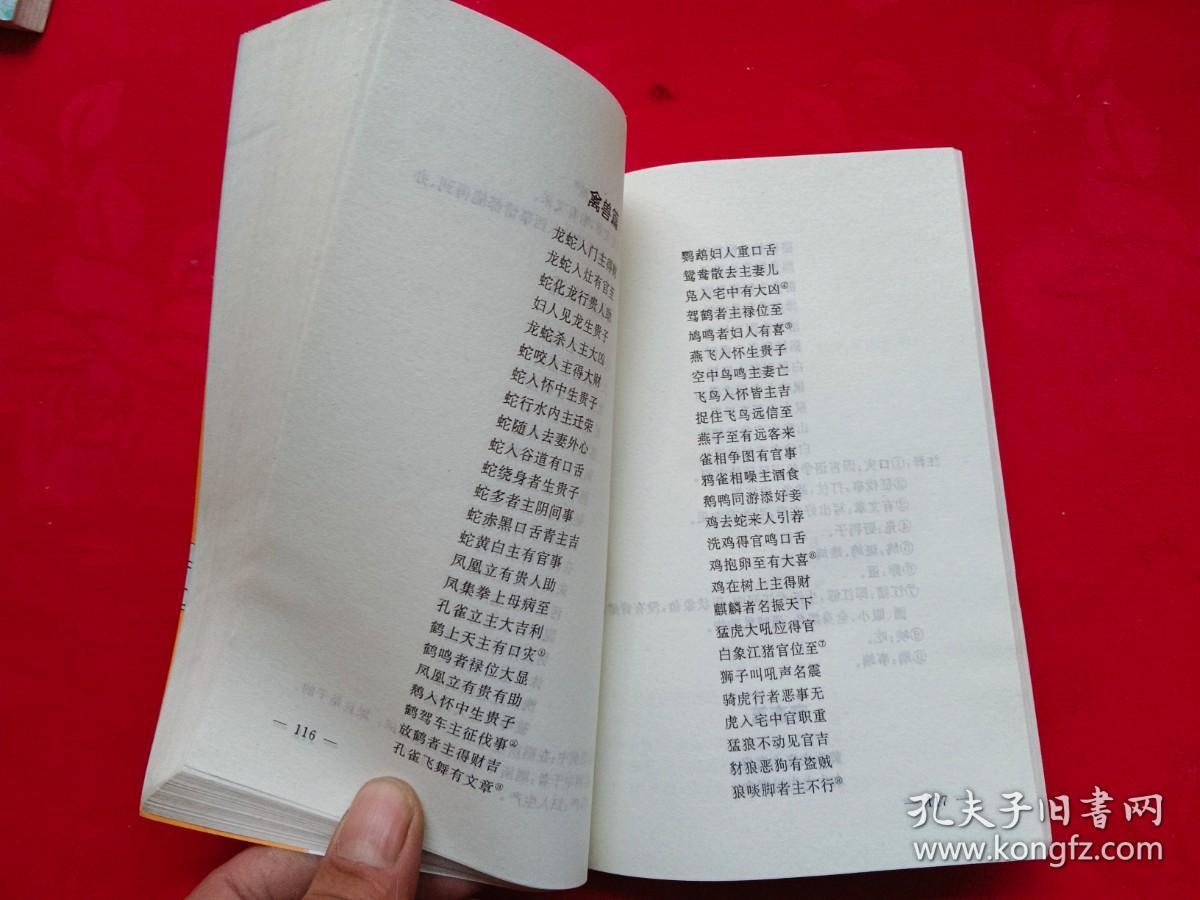 禽兽
龙蛇入门主得财
龙蛇入灶有官至
蛇化龙行贵人助
妇人见龙生贵子
龙蛇杀人主大凶
蛇咬人主得大财
蛇入怀中生贵子
蛇行水内主迁荣
蛇随人去妻外心
蛇入谷道有口舌
蛇绕身者生贵子
蛇多者主阴间事
蛇赤黑口舌青主吉
蛇黄白主有官事
凤凰立有贵人助
凤集拳上母病至
孔雀立主大吉利
鹤上天主有口灾①
鹤鸣者禄位大显
凤凰立有贵有助
鹅入怀中生贵子
鹤驾车主征伐事②
放鹤者主得财吉
孔雀飞舞有文章③
— 116 —
鹦鹉妇人重口舌
鸳鸯散去主妻儿
凫入宅中有大凶④
驾鹤者主禄位至
鸠鸣者妇人有喜⑤
燕飞入怀生贵子
空中鸟鸣主妻亡
飞鸟入怀皆主吉
捉住飞鸟远信至
燕子至有远客来
雀相争图有官事
鸦雀相噪主酒食
鹅鸭同游添好妾
鸡去蛇来人引荐
洗鸡得官鸣口舌
鸡抱卵至有大喜⑥
鸡在树上主得财
麒麟者名振天下
猛虎大吼应得官
白象江猪官位至⑦
狮子叫吼声名震
骑虎行者恶事无
虎入宅中官职重
猛狼不动见官吉
豺狼恶狗有盗贼
狼啖脚者主不行⑧
孔夫子旧书网
www.kongfz.com